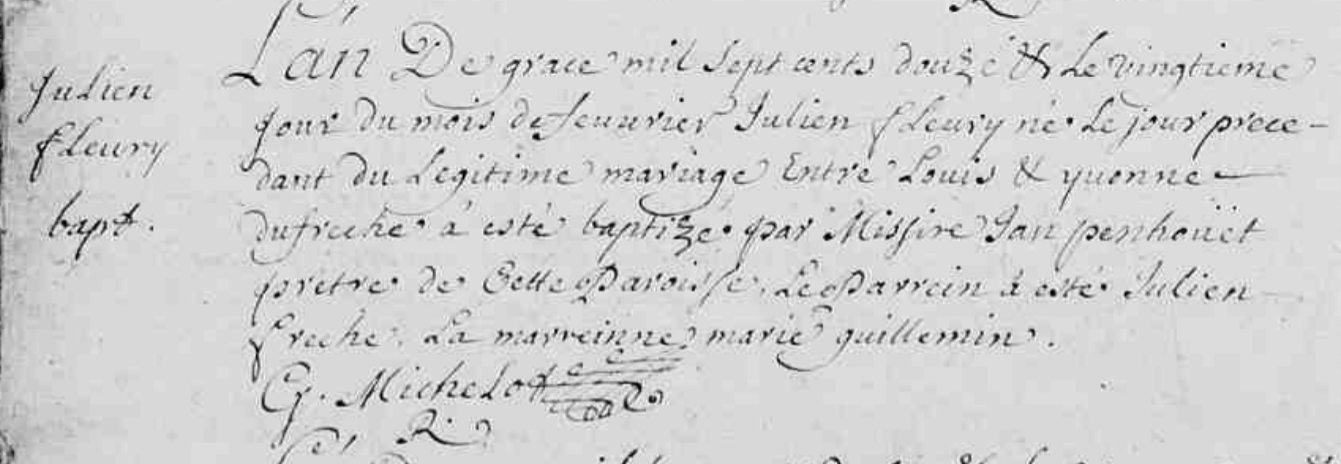 Julien
fleury
bapt.
L'an De grace mil sept cents douze & Le vingtieme
jour du mois de feuurier Julien fleury né Le jour prece-
dant du Legitime mariage Entre Louis & yuonne
dufreche a esté baptizé par Missire Jan penhoüet
prêtre de Cette Paroisse. Le Parrein a esté Julien
freche. La marreinne marie guillemin.
G. Michelot
R.